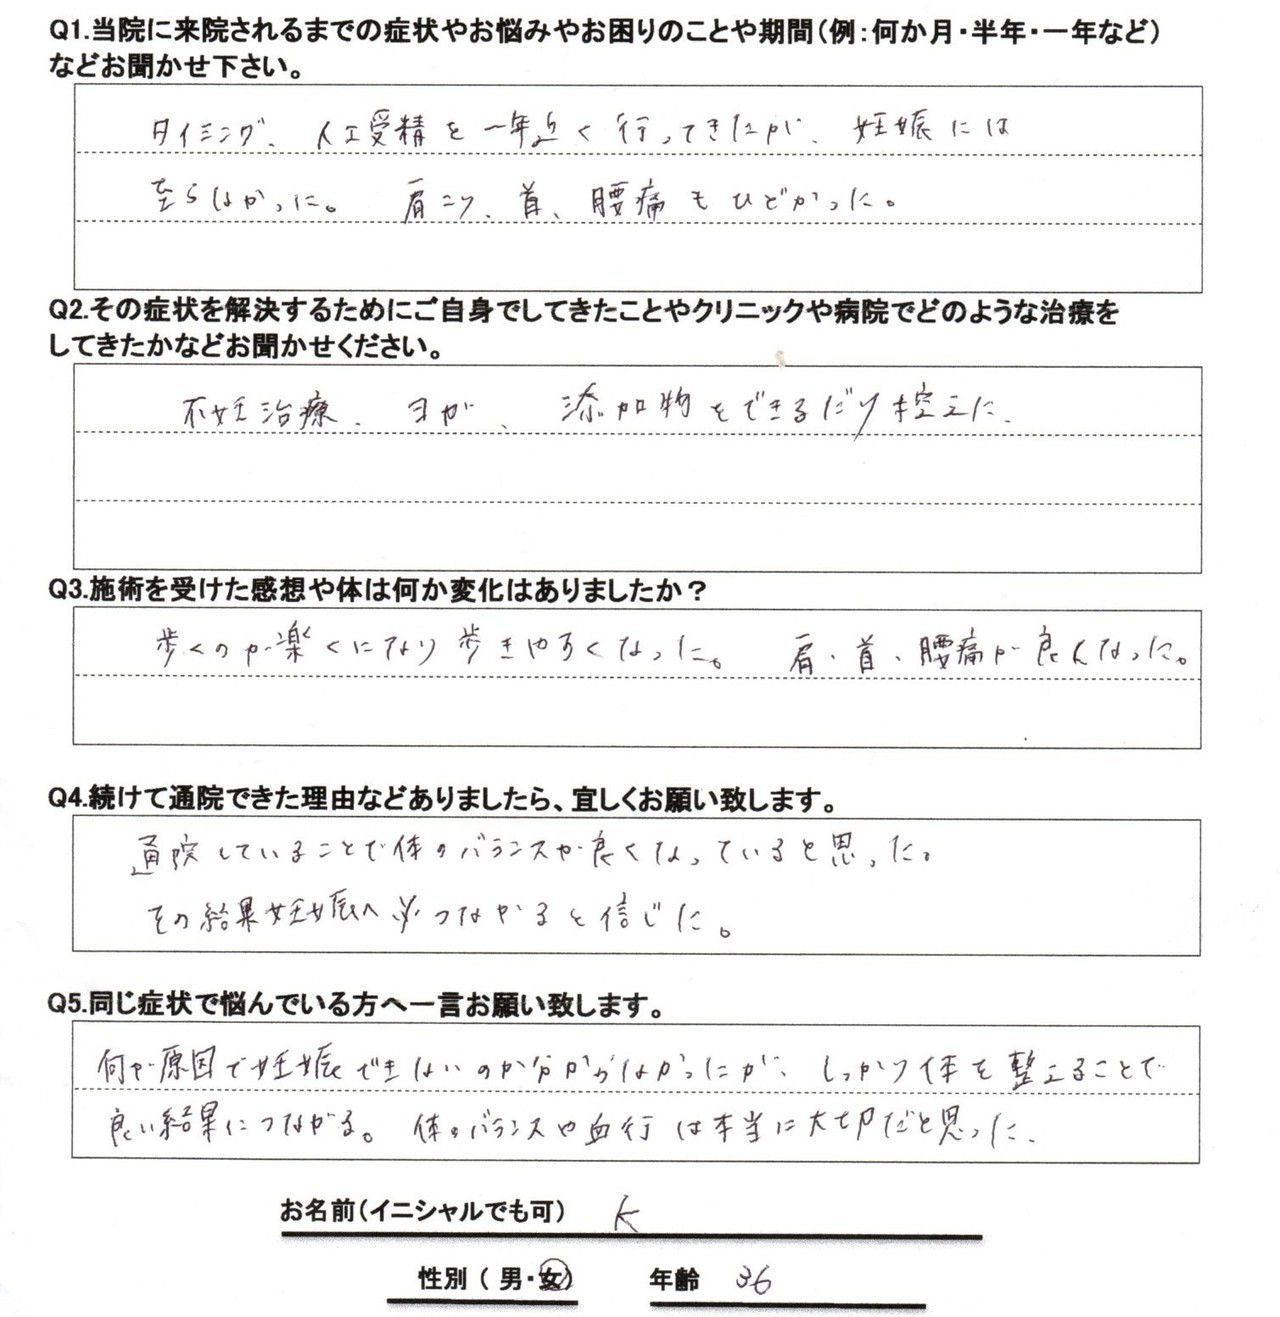 Q1.当院に来院されるまでの症状やお悩みやお困りのことや期間（例：何か月・半年・一年など）
などお聞かせ下さい。
タイミング、人工受精を一年近く行ってきたが、妊娠には
至らなかった。肩こり、首、腰痛もひどかった。
Q2.その症状を解決するためにご自身でしてきたことやクリニックや病院でどのような治療を
してきたかなどお聞かせください。
不妊治療、ヨガ、添加物をできるだけ控えた。
Q3.施術を受けた感想や体は何か変化はありましたか？
歩くのが楽くになり歩きやすくなった。肩・首・腰痛が良くなった。
Q4.続けて通院できた理由などありましたら、宜しくお願い致します。
通院していることで体のバランスが良くなっていると思った。
その結果妊娠へ必つながると信じた。
Q5.同じ症状で悩んでいる方へ一言お願い致します。
何が原因で妊娠できないのか分からなかったが、しっかり体を整えることで
良い結果につながる。体のバランスや血行は本当に大切だと思った。
お名前（イニシャルでも可） K
性別（男・女） 年齢 36